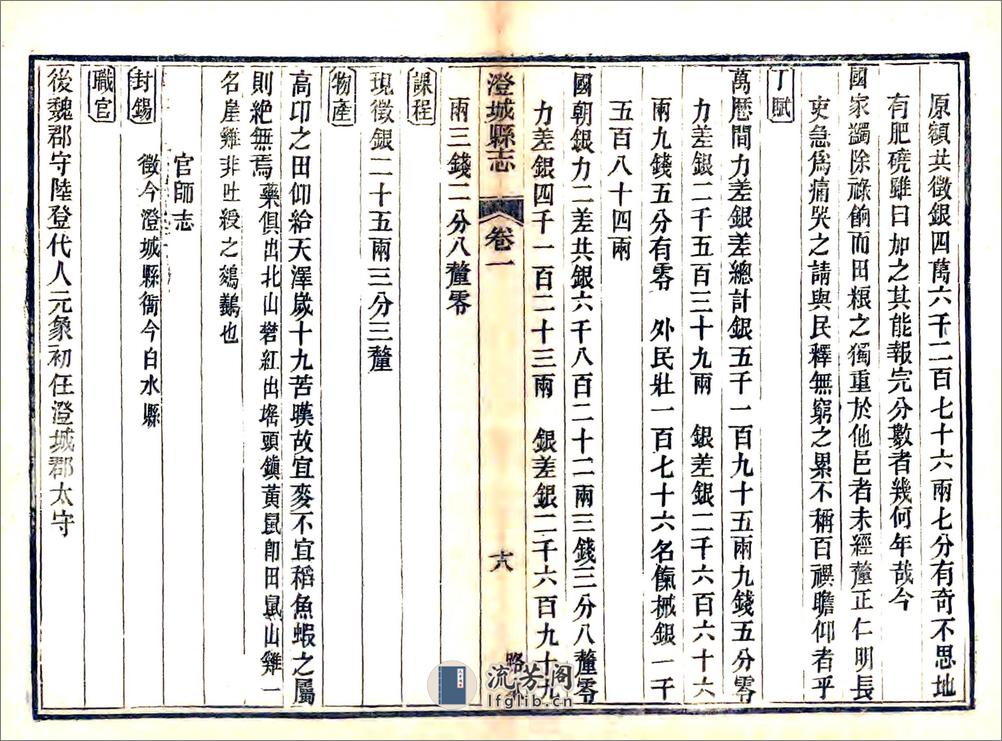 原額共徵銀四萬六千二百七十六兩七分有奇不思地
有肥磽雖曰加之其能報完分數者幾何年哉今
國家蠲除祿餉而田粮之獨重於他邑者未經釐正仁明長
吏急爲痛哭之請與民釋無窮之累不稱百禩瞻仰者乎
丁賦
萬歷間力差銀差總計銀五千一百九十五兩九錢五分零
力差銀二千五百三十九兩 銀差銀二千六百六十六
兩九錢五分有零 外民壯一百七十六名僟械銀一千
五百八十四兩
國朝銀力二差共銀六千八百二十二兩三錢三分八釐零
力差銀四千一百二十三兩 銀差銀二千六百九十九
澄城縣志 卷一 六
兩三錢二分八釐零
課程
現徵銀二十五兩三分三釐
物產
高卬之田仰給天澤歲十九苦暵故宜麥不宜稻魚蝦之屬
則絶無焉藥俱出北山礬紅出塔頭鎮黃鼠卽田鼠山雞一
名崖雞非吐綬之鷊鷊也
官師志
封錫 徵今澄城縣衙今白水縣
職官
後魏郡守陸登代人元象初任澄城郡太守
流芳阁
lfglib.cn